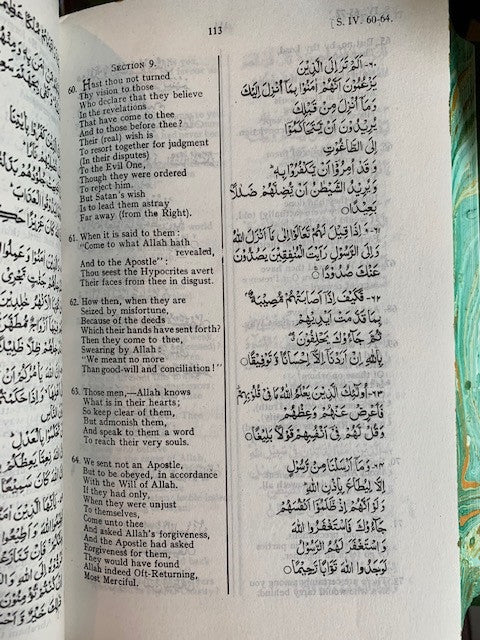 113
[ S. IV. 60-64.
SECTION 9.
60. Hast thou not turned
Thy vision to those
Who declare that they believe
In the revelations
That have come to thee
And to those before thee?
Their (real) wish is
To resort together for judgment
(In their disputes)
To the Evil One,
Though they were ordered
To reject him.
But Satan's wish
Is to lead them astray
Far away (from the Right).
61. When it is said to them:
"Come to what Allah hath
revealed,
And to the Apostle":
Thou seest the Hypocrites avert
Their faces from thee in disgust.
62. How then, when they are
Seized by misfortune,
Because of the deeds
Which their hands have sent forth?
Then they come to thee,
Swearing by Allah:
"We meant no more
Than good-will and conciliation!"
63. Those men,—Allah knows
What is in their hearts;
So keep clear of them,
But admonish them,
And speak to them a word
To reach their very souls.
64. We sent not an Apostle,
But to be obeyed, in accordance
With the Will of Allah.
If they had only,
When they were unjust
To themselves,
Come unto thee
And asked Allah's forgiveness,
And the Apostle had asked
Forgiveness for them,
They would have found
Allah indeed Oft-Returning,
Most Merciful.
٦٠- اَلَمْ تَرَ اِلَى الَّذِيْنَ
يَزْعُمُوْنَ اَنَّهُمْ اٰمَنُوْا بِمَاۤ اُنْزِلَ اِلَيْكَ
وَمَاۤ اُنْزِلَ مِنْ قَبْلِكَ
يُرِيْدُوْنَ اَنْ يَّتَحَاكَمُوْۤا
اِلَى الطَّاغُوْتِ
وَقَدْ اُمِرُوْۤا اَنْ يَّكْفُرُوْا بِهٖ
وَيُرِيْدُ الشَّيْطٰنُ اَنْ يُّضِلَّهُمْ ضَلٰلًا
بَعِيْدًا ○
٦١- وَ اِذَا قِيْلَ لَهُمْ تَعَالَوْا اِلٰى مَاۤ اَنْزَلَ اللّٰهُ
وَاِلَى الرَّسُوْلِ رَاَيْتَ الْمُنٰفِقِيْنَ يَصُدُّوْنَ
عَنْكَ صُدُوْدًا ○
٦٢- فَكَيْفَ اِذَاۤ اَصَابَتْهُمْ مُّصِيْبَةٌ
بِمَا قَدَّمَتْ اَيْدِيْهِمْ
ثُمَّ جَآءُوْكَ يَحْلِفُوْنَ
بِاللّٰهِ اِنْ اَرَدْنَاۤ اِلَّاۤ اِحْسَانًا وَّتَوْفِيْقًا ○
٦٣- اُولٰٓئِكَ الَّذِيْنَ يَعْلَمُ اللّٰهُ مَا فِيْ قُلُوْبِهِمْ
فَاَعْرِضْ عَنْهُمْ وَعِظْهُمْ
وَقُلْ لَّهُمْ فِيْۤ اَنْفُسِهِمْ قَوْلًا بَلِيْغًا ○
٦٤- وَمَاۤ اَرْسَلْنَا مِنْ رَّسُوْلٍ
اِلَّا لِيُطَاعَ بِاِذْنِ اللّٰهِ
وَلَوْ اَنَّهُمْ اِذْ ظَّلَمُوْۤا اَنْفُسَهُمْ
جَآءُوْكَ فَاسْتَغْفَرُوا اللّٰهَ
وَاسْتَغْفَرَ لَهُمُ الرَّسُوْلُ
لَوَجَدُوا اللّٰهَ تَوَّابًا رَّحِيْمًا ○